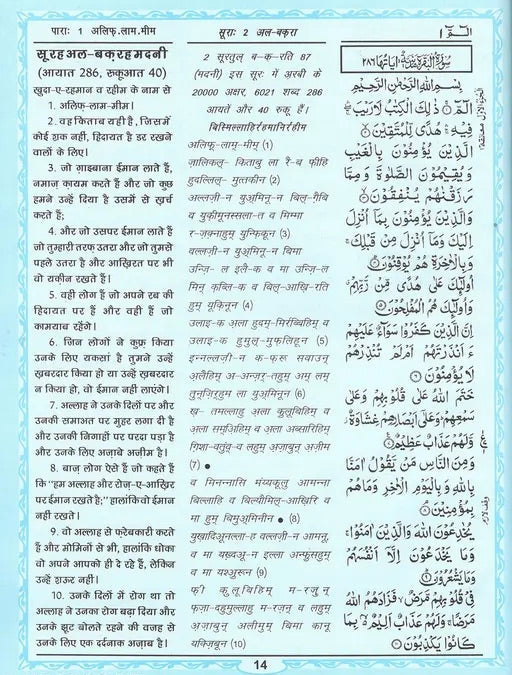 पाराः 1 अलिफ़.लाम.मीम
सूराः 2 अल-बक़रा
الٓمّٓ ١
सूरह अल-बक़रह मदनी
(आयात 286, रुकूआत 40)
ख़ुदा-ए-रहमान व रहीम के नाम से
1. अलिफ़-लाम-मीम।
2. वह किताब यही है, जिसमें
कोई शक नहीं, हिदायत है डर रखने
वालों के लिए।
3. जो ग़ाइबाना ईमान लाते हैं,
नमाज़ क़ायम करते हैं और जो कुछ
हमने उन्हें दिया है उसमें से ख़र्च
करते हैं;
4. और जो उसपर ईमान लाते हैं
जो तुम्हारी तरफ़ उतरा और जो तुमसे
पहले उतरा है और आख़िरत पर भी
वो यक़ीन रखते हैं।
5. वही लोग हैं जो अपने रब की
हिदायत पर हैं और वही हैं जो
कामयाब रहेंगे।
6. जिन लोगों ने कुफ़्र किया
उनके लिए यकसां है तुमने उन्हें
ख़बरदार किया हो या उन्हें ख़बरदार
न किया हो, वो ईमान नहीं लाएंगे।
7. अल्लाह ने उनके दिलों पर और
उनकी समाअत पर मुहर लगा दी है
और उनकी निगाहों पर परदा पड़ा है
और उनके लिए अजाबे अज़ीम है।
8. बाज़ लोग ऐसे हैं जो कहते हैं
कि "हम अल्लाह और रोज़-ए-आख़िर
पर ईमान रखते है;" हालांकि वो ईमान
नहीं रखते।
9. वो अल्लाह से फ़रेबकारी करते
हैं और मोमिनों से भी, हालांकि धोका
वो अपने आपको ही दे रहे हैं, लेकिन
उन्हें शऊर नहीं।
10. उनके दिलों में रोग था तो
अल्लाह ने उनका रोग बढ़ा दिया और
उनके झूट बोलते रहने की वजह से
उनके लिए एक दर्दनाक अज़ाब है।
2 सूरतुल् ब-क़-रति 87
(मदनी) इस सूरः में अ़रबी के
20000 अक्षर, 6021 शब्द 286
आयतें और 40 रुकू हैं।
बिस्मिल्लाहिर्रहमानिर्रहीम
अलिफ्-लाम्-मीम् (1)
ज़ालिकल्- किताबु ला रै-ब फ़ीहि
हुदल्लिल्- मुत्तकीन (2)
अल्लज़ी-न युअ्मिनू-न बिल्-ग़ैबि
व युक़ीमूनस्सला-त व मिम्मा
र-ज़क़्नाहुम् युन्फ़िकून (3)
वल्लज़ी-न युअ्मिनू-न बिमा
उन्ज़ि-ल इलै-क व मा उन्ज़ि-ल
मिन् क़ब्लि-क व बिल्-आख़ि-रति
हुम् यूक़िनून (4)
उलाइ-क अ़ला हुदम्-मिर्रब्बिहिम् व
उलाइ-क हुमुल्-मुफ्लिहून (5)
इन्नल्लज़ी-न क-फ़रू सवाउन्
अ़लैहिम् अ-अन्ज़र्-तहुम् अम् लम्
तुन्ज़िर्हुम ला युअ्मिनून (6)
ख़- तमल्लाहु अ़ला कुलूबिहिम् व
अ़ला सम्अ़िहिम् व अ़ला अब्सारिहिम्
ग़िशा-वतुंव्-व लहुम् अ़ज़ाबुन् अ़ज़ीम
(7) ●
व मिनन्नासि मंय्यक़ूलु आमन्ना
बिल्लाहि व बिल्यौमिल्-आख़िरि व
मा हुम् बिमुअ्मिनीन ● (8)
युख़ादिअूनल्ला-ह वल्लज़ी-न आमनू,
व मा यख़्दअू-न इल्ला अन्फुसहुम्
व मा यश्अुरून (9)
फ़ी कुलूबिहिम् म-रजुन्
फ़ज़ा-दहुमुल्लाहु म-रज़न् व लहुम्
अ़ज़ाबुन् अलीमुम् बिमा कानू
यक्ज़िबून (10)
سُوْرَةُ الْبَقَرَةِ مَدَنِيَّةٌ اٰيَاتُهَا ٢٨٦
بِسْمِ اللهِ الرَّحْمٰنِ الرَّحِيْمِ
الٓمّٓ ۚ ذٰلِكَ الْكِتٰبُ لَا رَيْبَ ۛ
فِيْهِ ۛ هُدًى لِّلْمُتَّقِيْنَ
الَّذِيْنَ يُؤْمِنُوْنَ بِالْغَيْبِ
وَيُقِيْمُوْنَ الصَّلٰوةَ وَمِمَّا
رَزَقْنٰهُمْ يُنْفِقُوْنَ
وَالَّذِيْنَ يُؤْمِنُوْنَ بِمَآ اُنْزِلَ
اِلَيْكَ وَمَآ اُنْزِلَ مِنْ قَبْلِكَ
وَبِالْاٰخِرَةِ هُمْ يُوْقِنُوْنَ
اُولٰٓئِكَ عَلٰى هُدًى مِّنْ رَّبِّهِمْ
وَاُولٰٓئِكَ هُمُ الْمُفْلِحُوْنَ
اِنَّ الَّذِيْنَ كَفَرُوْا سَوَآءٌ عَلَيْهِمْ
ءَاَنْذَرْتَهُمْ اَمْ لَمْ تُنْذِرْهُمْ
لَا يُؤْمِنُوْنَ
خَتَمَ اللهُ عَلٰى قُلُوْبِهِمْ وَعَلٰى
سَمْعِهِمْ وَعَلٰٓى اَبْصَارِهِمْ غِشَاوَةٌ
وَّلَهُمْ عَذَابٌ عَظِيْمٌ
وَمِنَ النَّاسِ مَنْ يَّقُوْلُ اٰمَنَّا
بِاللهِ وَبِالْيَوْمِ الْاٰخِرِ وَمَا هُمْ
بِمُؤْمِنِيْنَ
يُخٰدِعُوْنَ اللهَ وَالَّذِيْنَ اٰمَنُوْا
وَمَا يَخْدَعُوْنَ اِلَّآ اَنْفُسَهُمْ
وَمَا يَشْعُرُوْنَ
فِيْ قُلُوْبِهِمْ مَّرَضٌ فَزَادَهُمُ اللهُ
مَرَضًا وَلَهُمْ عَذَابٌ اَلِيْمٌ بِمَا
كَانُوْا يَكْذِبُوْنَ
14